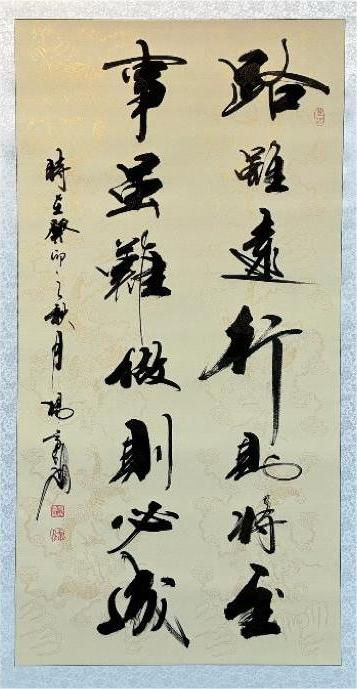 路雖遠行則将至
事虽難做則必成
時在癸卯之秋月楊